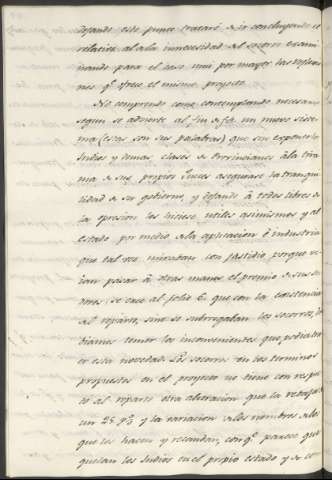 dejando este punto trataré de ir concluyendo el
relativo al a la innecesidad del socorro exami-
nando para el caso mui por mayor las razones
nes q.e ofrece el mismo proyecto.
No comprendo como contemplando necesario
segun se advierte al fin de f.a un nuevo siste-
ma (estas son sus palabras) que sin exponer los
Indios y demas clases de Provincianos á la tira-
nia de sus propios Jueces asegurase la tranqui-
lidad de su gobierno, y dejando á todos libres de
la opresion los hiciese utiles asimismos y al
estado por medio de la aplicacion é industria
que tal vez miraban con fastidio porque ve-
ian pasar á otras manos el premio de sus afa-
nes; se crea al folio 6 que con la existencia
del reparto, sino se subrogaban los socorros,
diamos temer los inconvenientes que
cir esta novedad. Los socorros en los terminos
propuestos en el proyecto no tiene con respec-
to al reparto otra alteracion que la rebaja de
un 25 p% y la variacion de los nombres de los
que los hacen y recaudan, con q.e parece que
quedan los Indios en el propio estado y de